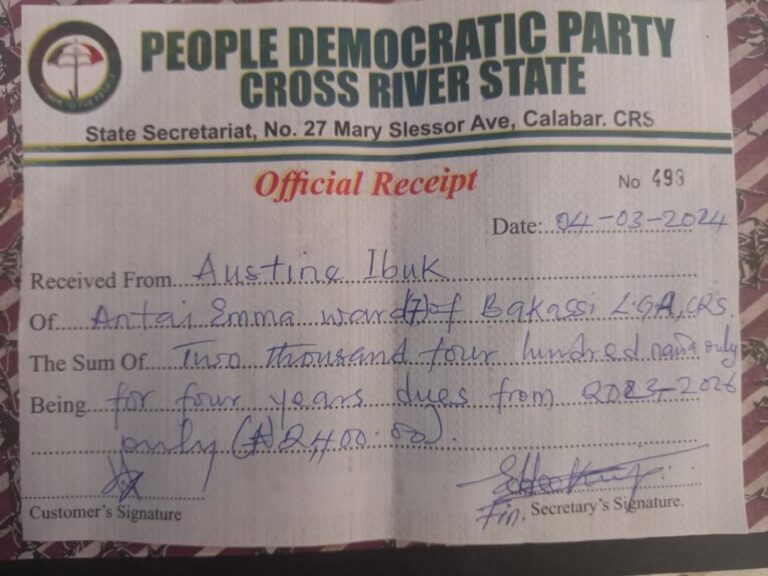 PEOPLE DEMOCRATIC PARTY
CROSS RIVER STATE
State Secretariat, No. 27 Mary Slessor Ave, Calabar. CRS
Official Receipt
No 493
Date: 04-03-2024
Received From Austine Ibuk
Of Antai Emma ward (7) of Bakassi L.G.A, CRS.
The Sum Of Two thousand four hundred naira only
Being for four years dues from 2023-2026
only (₦2,400.00).
Customer's Signature
Fin. Secretary's Signature.